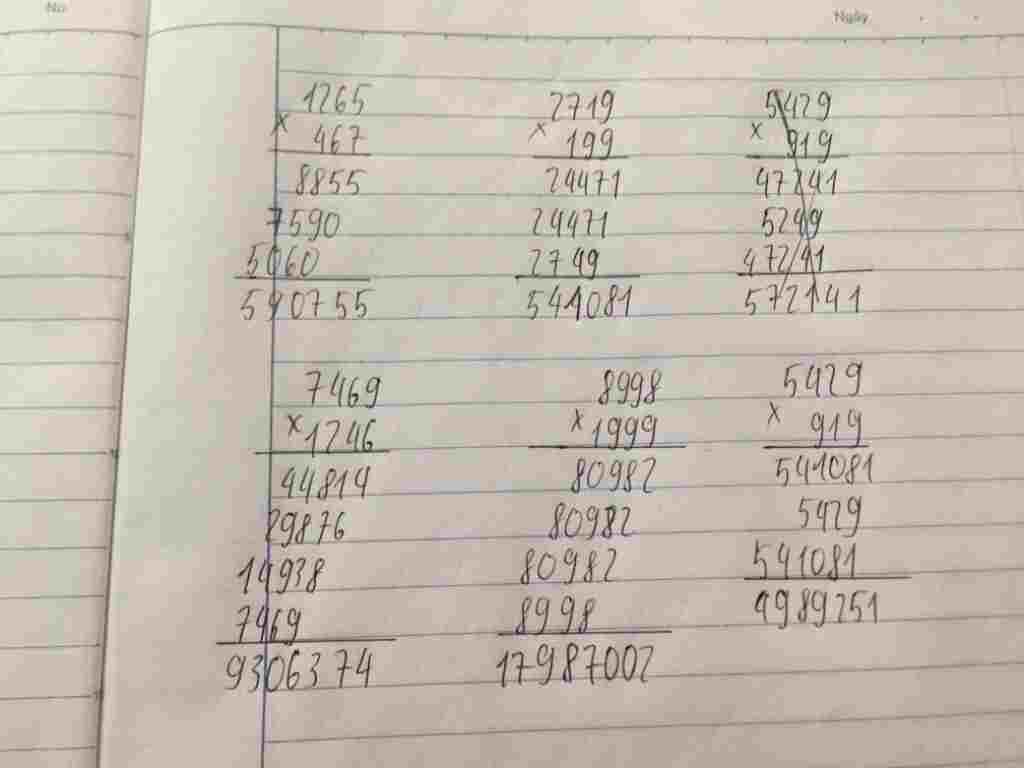 No Ngày
1265 2719 5429
× 467 × 199 × 919
8855 24471 47241
7590 24471 5249
5060 2749 47241
590755 541081 572141
7469 8998 5429
×1246 ×1999 × 919
44814 80982 541081
29876 80982 5429
14938 80982 541081
7469 8998 4989251
9306374 17987002